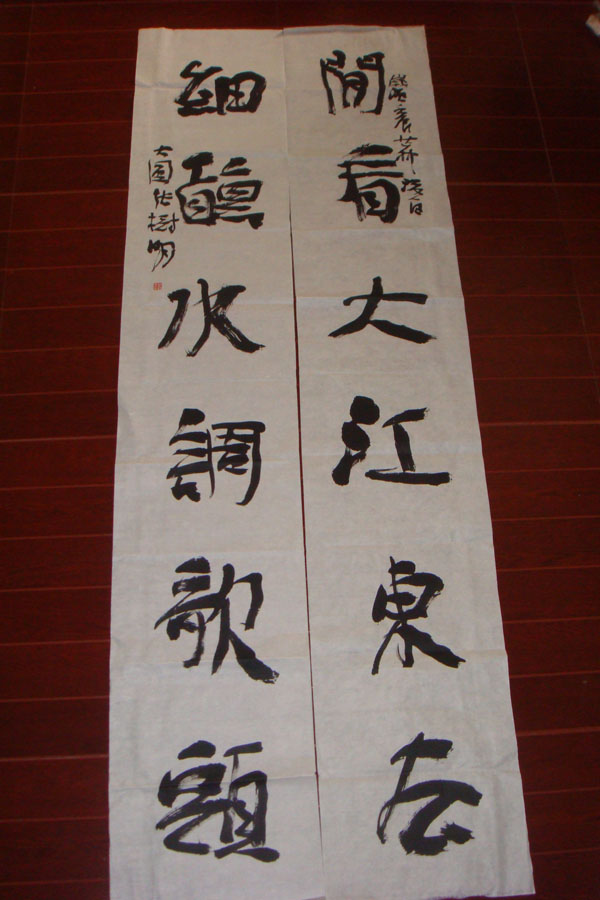 間看大江東去
細聽水調歌頭
大圓張樹明